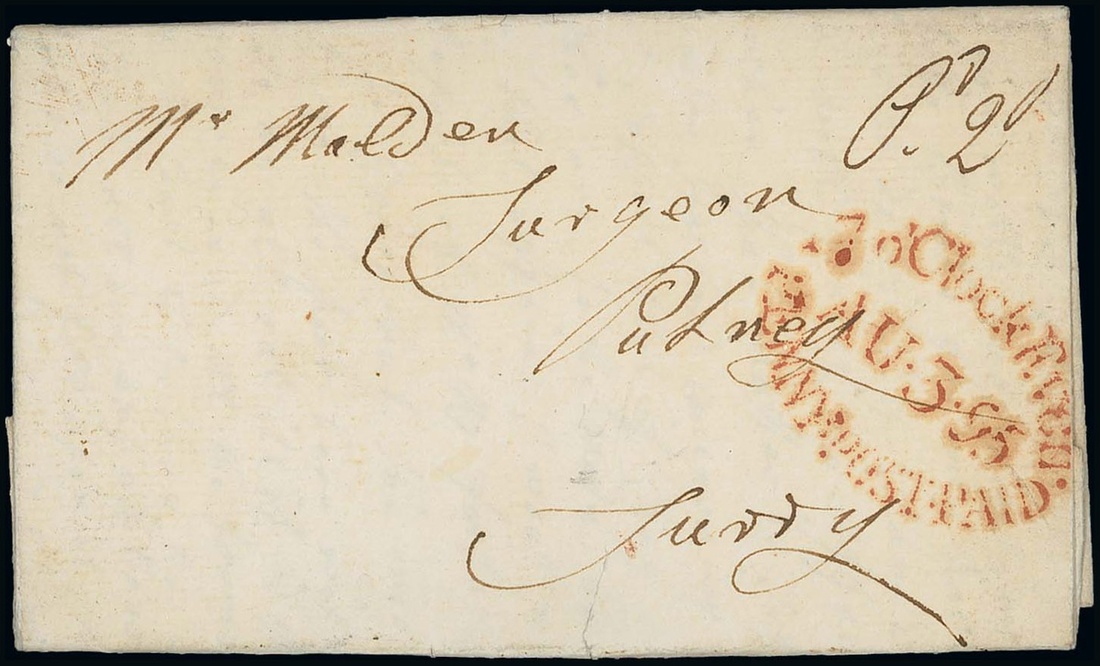 Mr Malden
Pd 2d
Surgeon
Putney
Surry
7 o'Clock
AU·3·98
PENNY·POST·PAID